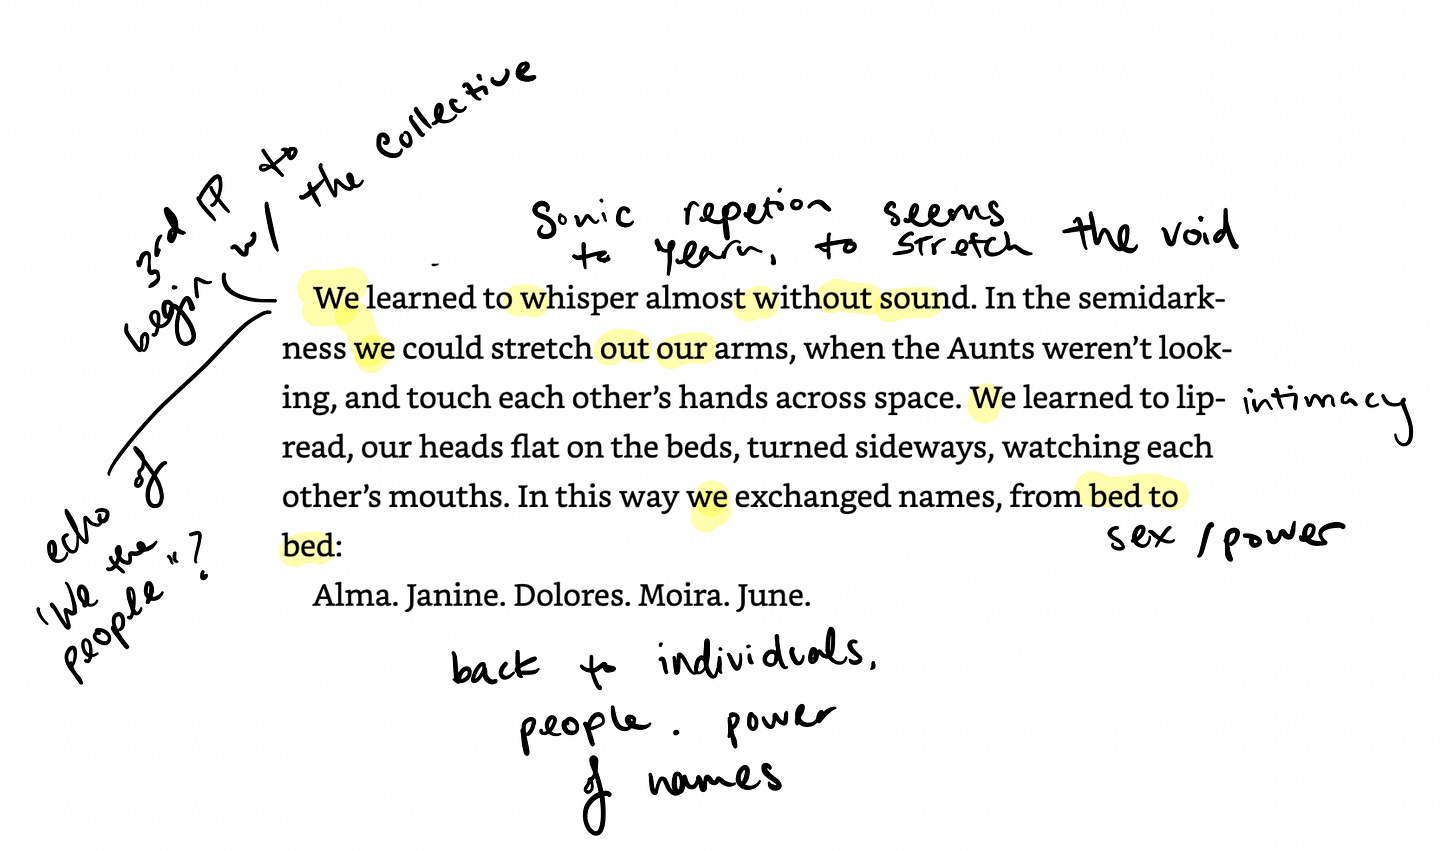 3rd PP to
begin w/ the collective
Sonic repetion seems
to yearn, to stretch the void
We learned to whisper almost without sound. In the semidark-
ness we could stretch out our arms, when the Aunts weren’t look-
ing, and touch each other’s hands across space. We learned to lip-
intimacy
read, our heads flat on the beds, turned sideways, watching each
other’s mouths. In this way we exchanged names, from bed to
sex / power
bed:
echo of
"We the
people"?
Alma. Janine. Dolores. Moira. June.
back to individuals,
people. power
of names